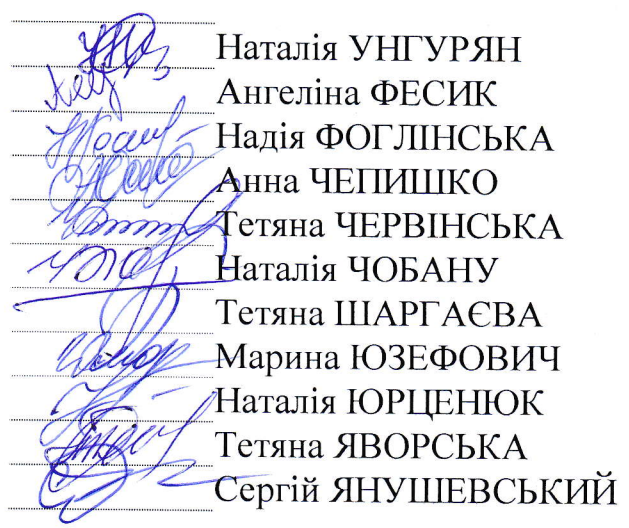 Наталія УНГУРЯН
Ангеліна ФЕСИК
Надія ФОГЛІНСЬКА
Анна ЧЕПИШКО
Тетяна ЧЕРВІНСЬКА
Наталія ЧОБАНУ
Тетяна ШАРГАЄВА
Марина ЮЗЕФОВИЧ
Наталія ЮРЦЕНЮК
Тетяна ЯВОРСЬКА
Сергій ЯНУШЕВСЬКИЙ